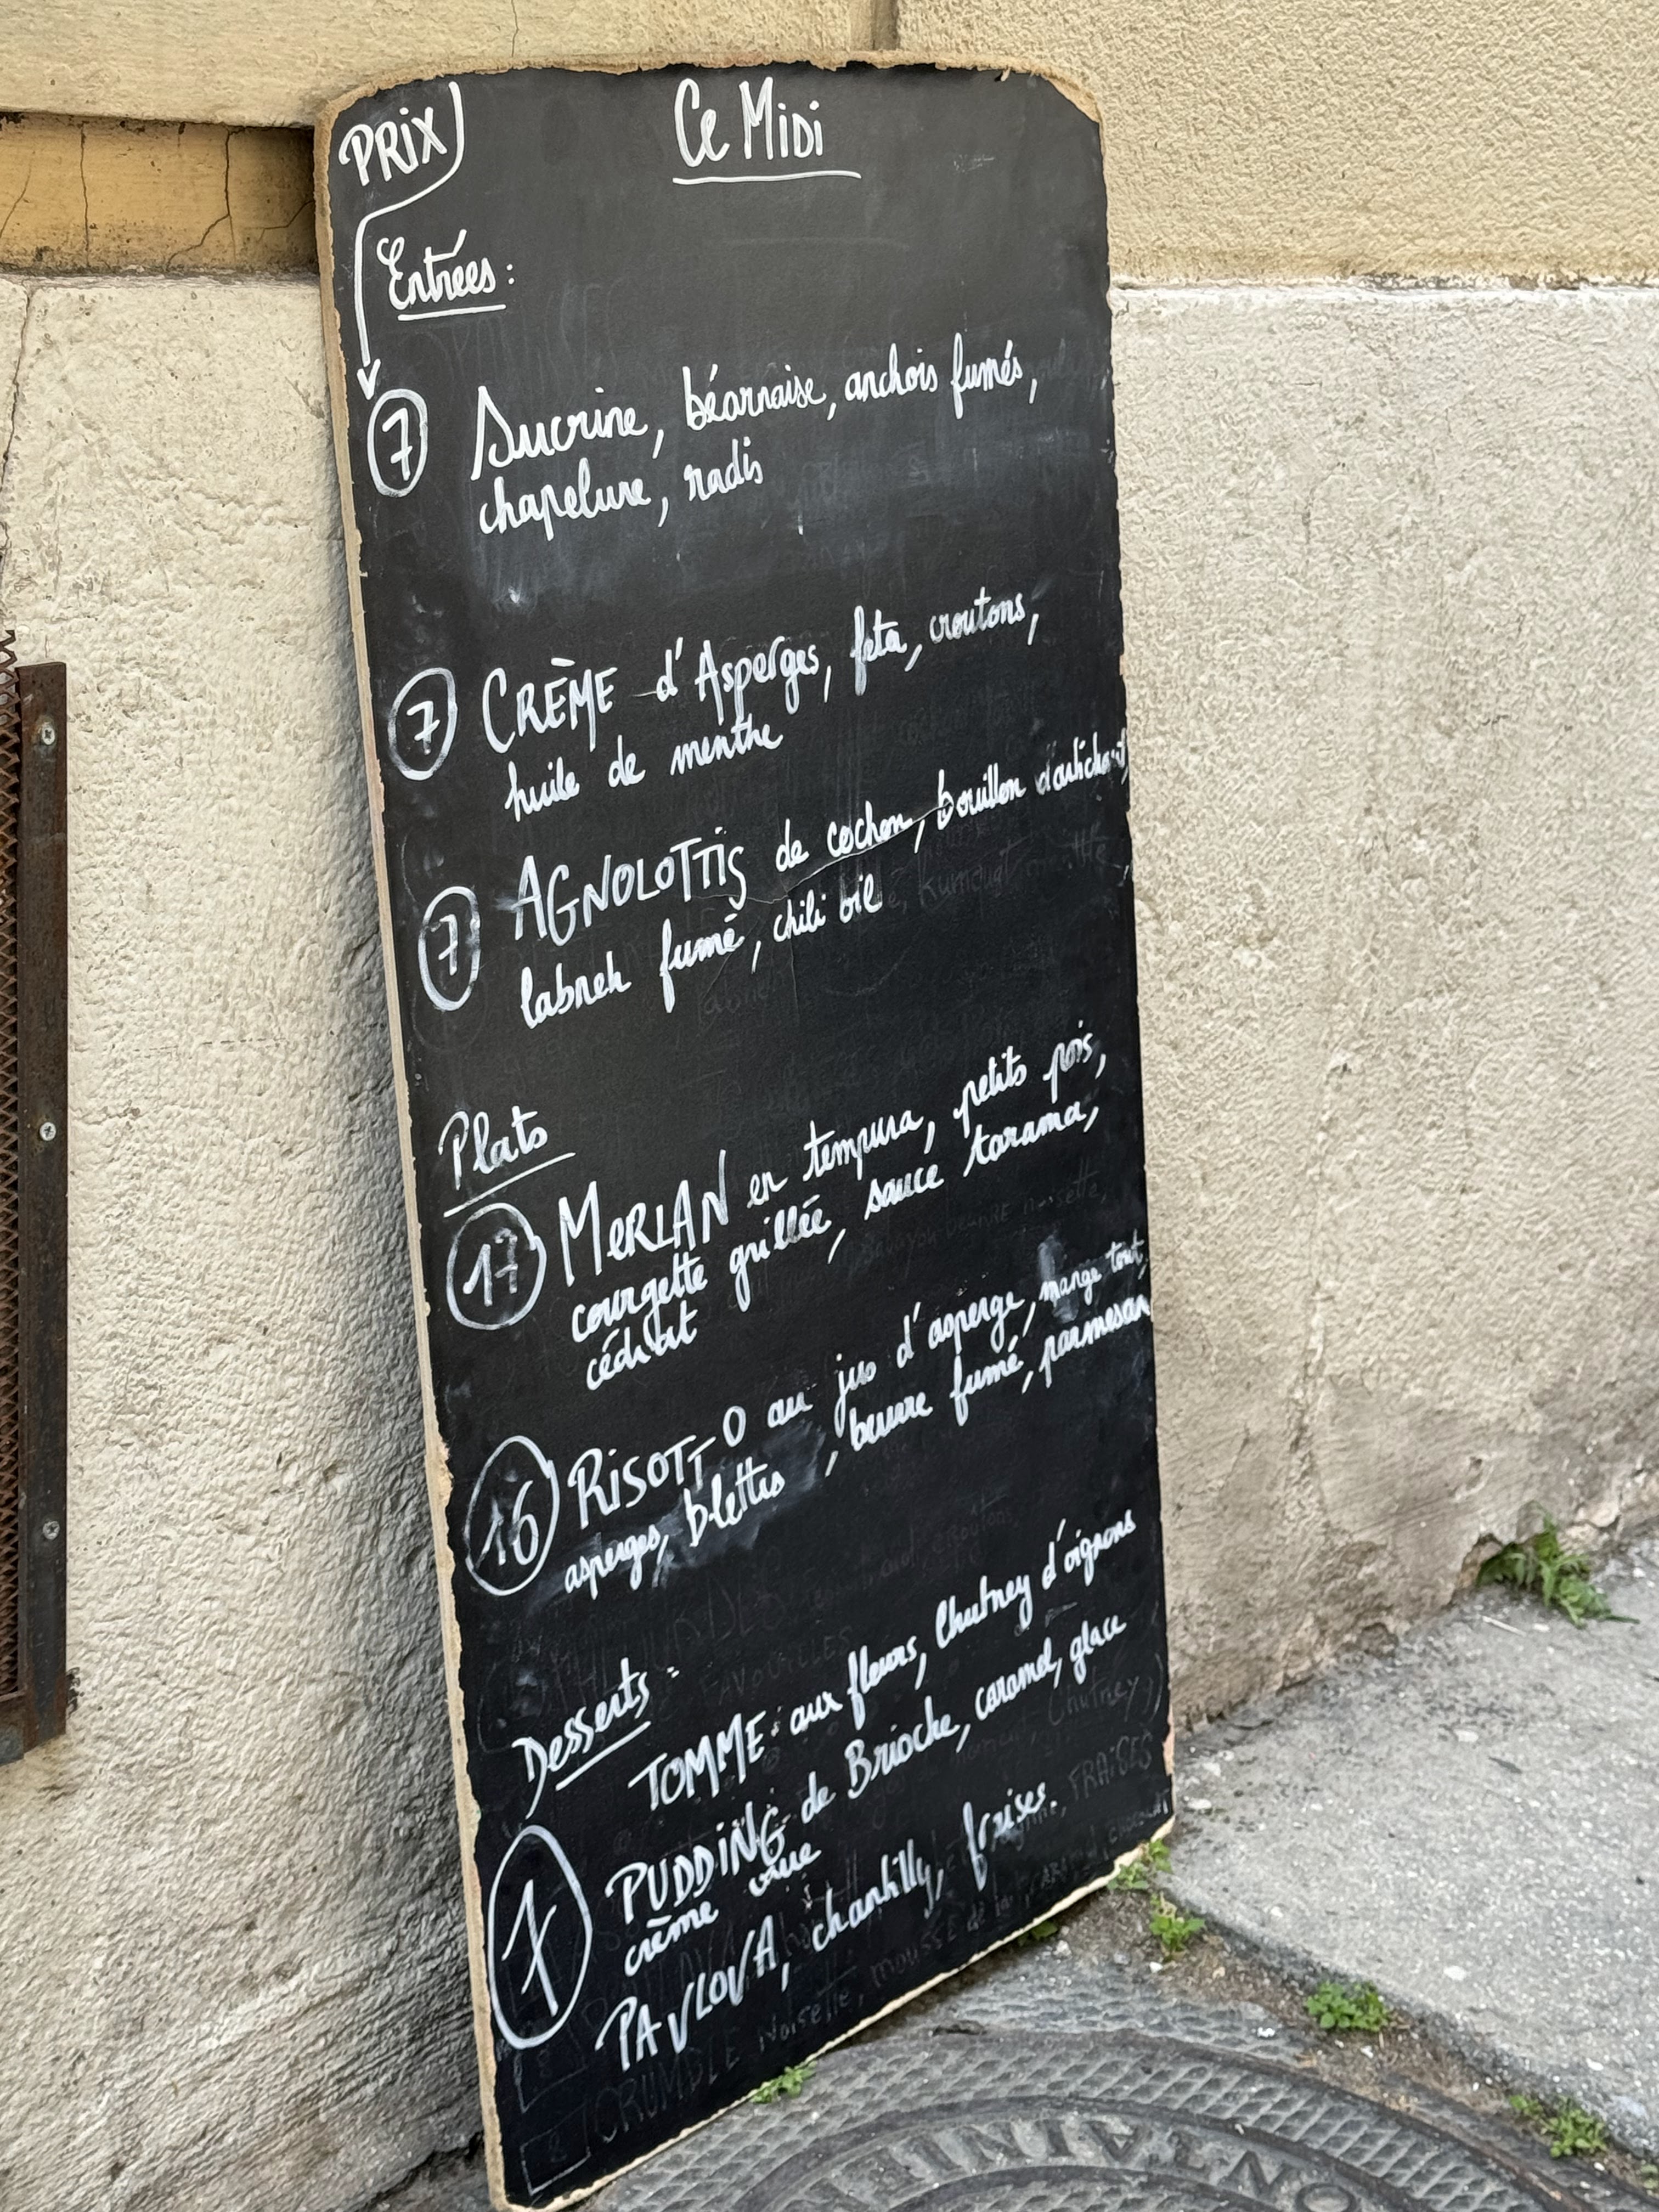 PRIX
Ce Midi
Entrées :
7 Sucrine, béarnaise, anchois fumés,
chapelure, radis
7 CRÈME d'Asperges, feta, croutons,
huile de menthe
7 AGNOLOTTIS de cochon, bouillon d'artichaut
labneh fumé, chili oil
Plats
17 MERLAN en tempura, petits pois,
courgette grillée, sauce tarama,
cédrat
16 RISOTTO au jus d'asperge, mange tout,
asperges, blettes, beurre fumé, parmesan
Desserts :
TOMME aux fleurs, Chutney d'oignons
7 PUDDING de Brioche, caramel, glace
crème crue
PAVLOVA, chantilly, fraises.
CRUMBLE Noisette, MOUSSE de lait